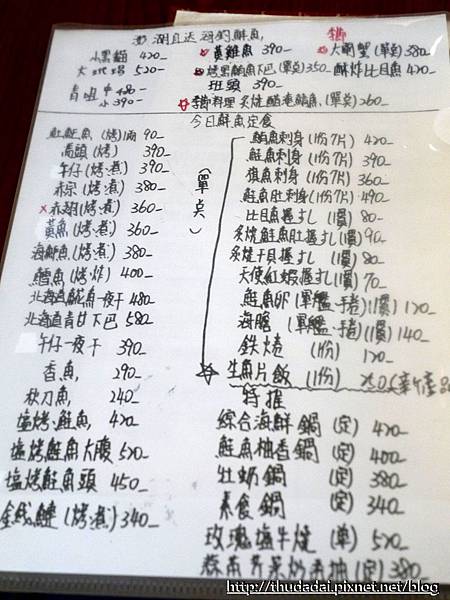 澎湖直送 海釣鮮魚,
小黑貓 420
大 520
青咀 中 480
小 390
黃雞魚 390
烤黑鮪魚下巴(單点)350
班頭 390
大閘蟹(單点)380
酥炸比目魚 420
料理 炙燒醋港鯖魚,(單点)260
今日鮮魚定食
(單点)
肚魟魚(烤)兩 90
喬頭(烤) 390
午仔(烤.煮) 390
赤宗(烤.煮) 380
赤翅(烤.煮) 360
黃魚(烤.煮) 360
海鱺魚(烤.煮) 380
鱈魚(烤.炸) 400
北海道 魚一夜干 480
北海道青甘下巴 580
午仔一夜干 390
香魚, 290
秋刀魚, 240
塩烤.鮭魚, 420
塩烤鮭魚大腹 520
塩烤鮭魚頭 450
金線鰱(烤.煮)340
鮪魚刺身(1份7片) 420
鮭魚刺身(1份7片) 390
旗魚刺身(1份7片) 360
鮭魚肚刺身(1份7片) 490
比目魚握扎(1貫) 80
炙燒鮭魚肚握扎(1貫)90
炙燒干貝握扎(1貫) 80
天使紅蝦握扎(1貫)70
鮭魚卵(軍艦.手卷)(1貫)120
海膽(軍艦.手卷)(1貫)140
鉄燒 (1份) 120
生魚片飯 (1份)
特推
綜合海鮮鍋 (定) 420
鮭魚柚香鍋 (定) 400
牡蠣鍋 (定) 380
素食鍋 (定) 340
玫瑰塩牛燒 (單) 520
奶 (定)380
http://thudadai.pixnet.net/blog